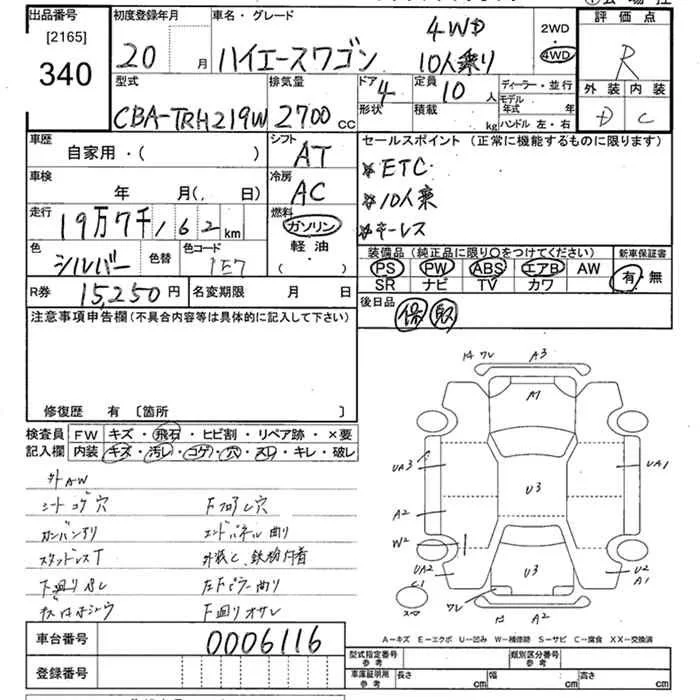 出品番号
[2165]
340
初度登録年月
20 月
車名・グレード
ハイエースワゴン
4WD
10人乗り
2WD
・
4WD
評価点
R
外装 内装
D C
型式
CBA-TRH219W
排気量
2700 CC
ドア
4
形状
定員
10 人
積載
kg
ディーラー・並行
モデル年式 年
ハンドル 左・右
車歴
自家用・( )
シフト
AT
車検
年 月( 日)
冷房
AC
走行
19万7千162 km
燃料
ガソリン
軽油・
( )
色
シルバー
色替
色コード
1E7
R券
15,250円
名変期限 月 日
セールスポイント (正常に機能するものに限ります)
※ETC
※10人乗
※キーレス
装備品 (純正品に限り○をつけてください)
PS PW ABS エアB AW
SR ナビ TV カワ
新車保証書
有・無
後日品
保 取
注意事項申告欄(不具合内容等は具体的に記入して下さい)
修復歴 有 [箇所 ]
検査員
記入欄
FW キズ・飛石・ヒビ割・リペア跡・×要
内装 キズ・汚レ・コゲ・穴・スレ・キレ・破レ
外AW
シートコゲ穴
スタッドレスT
Fフロアし穴
エンドパネル曲り
14 ワレ A3
A7
UA3
U3
UA1
A2
W2
UA2
C1
スマ
U3
U2
A1
ワレ
A2
A-キズ E-エクボ U-凹み W-補修跡 S-サビ C-腐食 XX-交換済
車台番号
0006116
登録番号
型式指定番号
参考
類別区分番号
参考
車庫証明用
参考
長さ cm
幅 cm
高さ cm